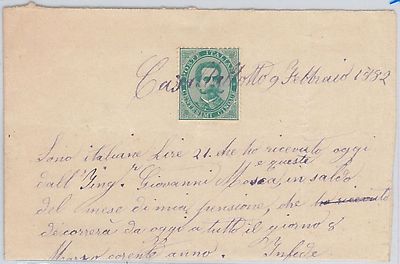 9 Febbraio 1892
POSTE ITALIANE
Sono italiane Lire 21. che ho ricevuto oggi
e queste
dall'Ing.r Giovanni Mosca, in saldo
del mese di mia pensione, che ho ricevuto
decorrera da oggi a tutto il giorno 8
Marzo corente anno. Infede